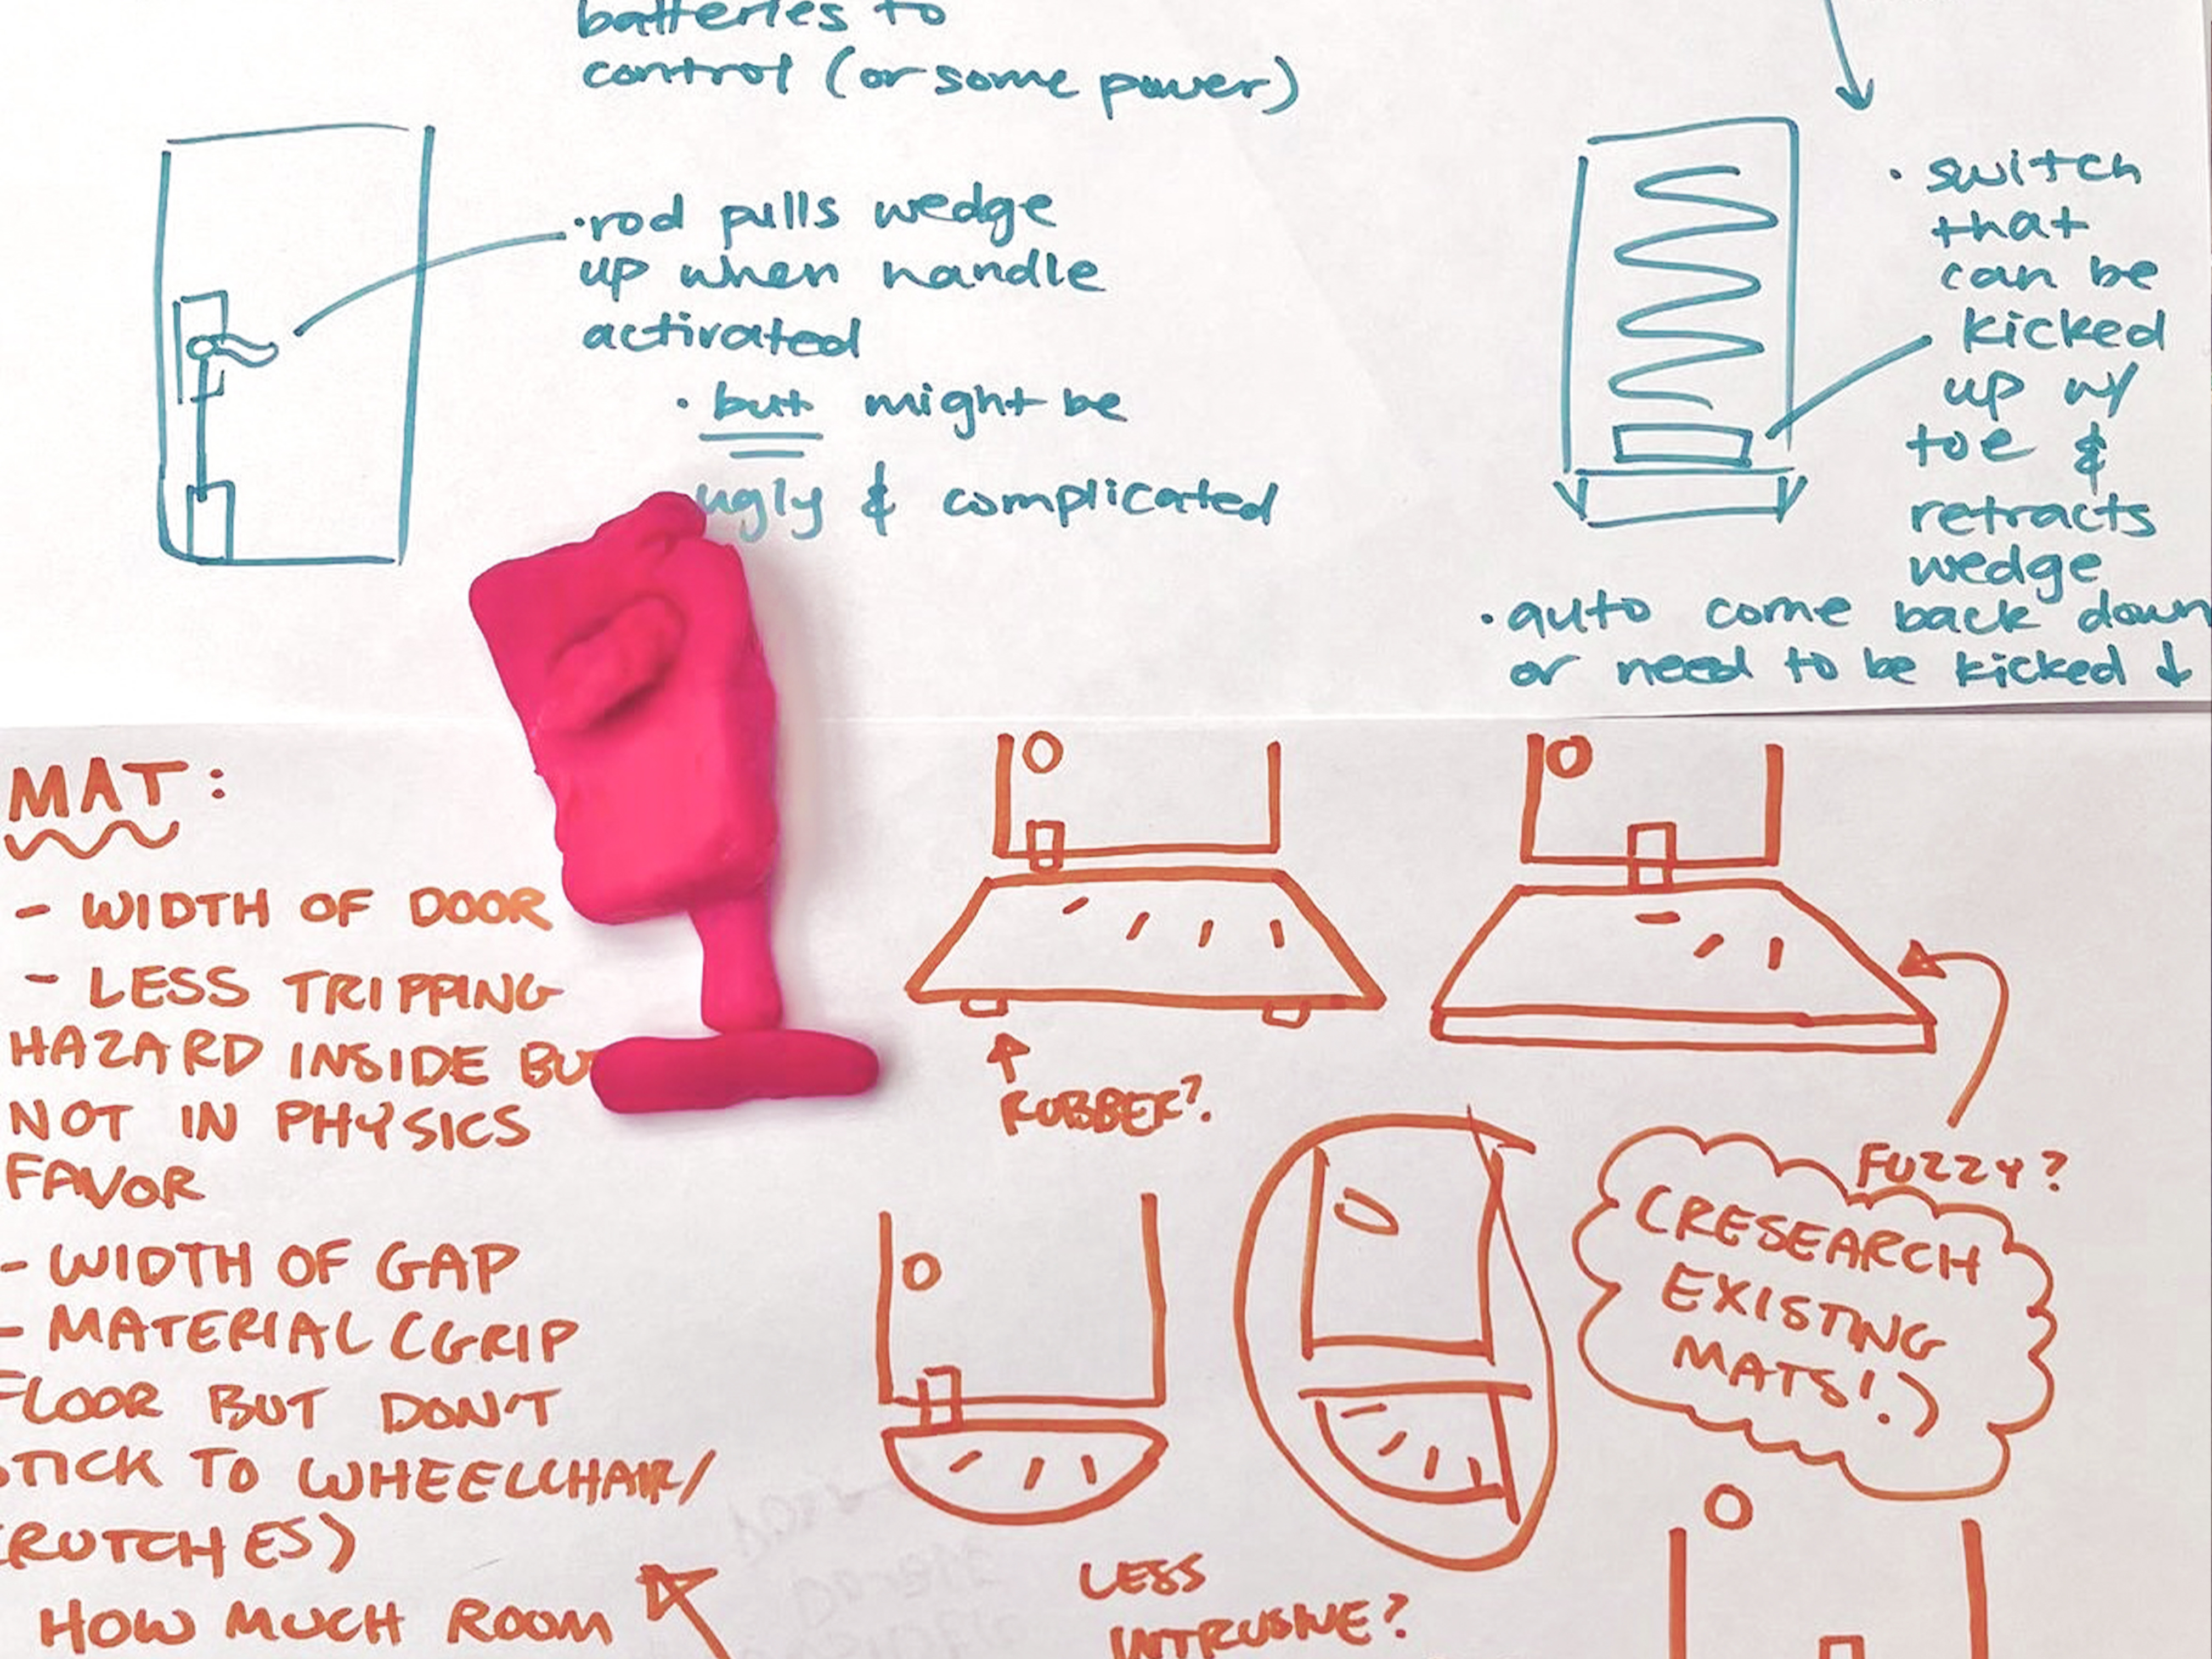 batteries to
control (or some power)
·rod pulls wedge
up when handle
activated
· but might be
ugly & complicated
· switch
that
can be
kicked
up w/
toe &
retracts
wedge
· auto come back down
or need to be kicked ↓
MAT:
- WIDTH OF DOOR
- LESS TRIPPING
HAZARD INSIDE BU
NOT IN PHYSICS
FAVOR
- WIDTH OF GAP
- MATERIAL (GRIP
FLOOR BUT DON'T
STICK TO WHEELCHAIR/
CRUTCHES)
HOW MUCH ROOM
RUBBER?
FUZZY?
(RESEARCH
EXISTING
MATS!)
LESS
INTRUSIVE?